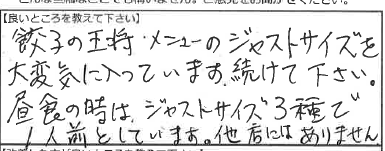 【良いところを教えて下さい】
餃子の王将・メニューのジャストサイズを
大変気に入っています。続けて下さい。
昼食の時は、ジャストサイズ3種で
1人前としています。他店にはありません